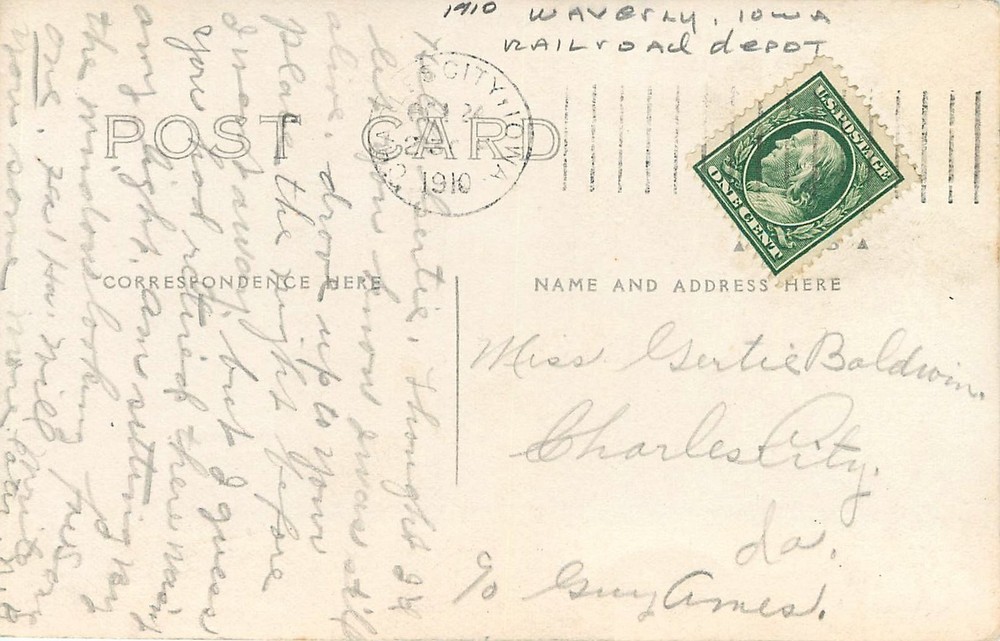 1910 WAVERLY, IOWA
RAILROAD DEPOT
POST CARD
CITY, IOWA
1910
U.S. POSTAGE
ONE CENT
CORRESPONDENCE HERE
NAME AND ADDRESS HERE
Miss Gertie Baldwin.
Charles City,
Ia.
c/o Guy Ames.
Hello Gertie, Thought I'd
let you know I was still
alive. drove up to your
place the night before
I went away, but I guess
you had retired there wasn't
any light. Am sitting by
the window looking for
one.